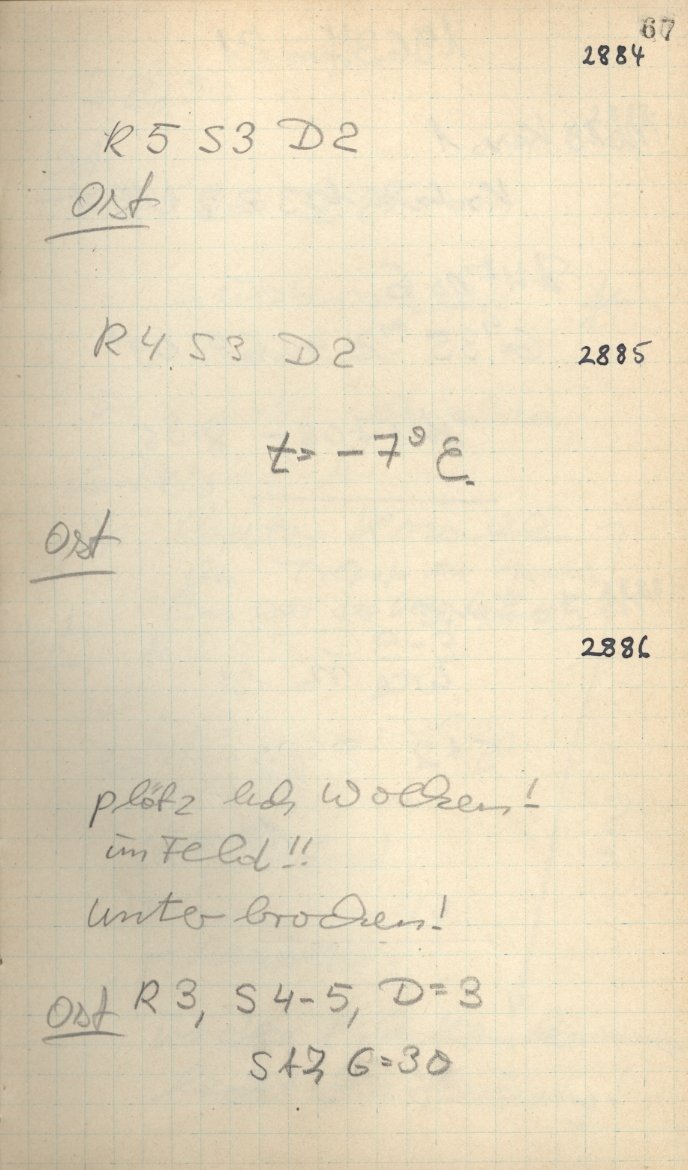 67
2884
R5 S3 D2
Ost
R4 S3 D2
2885
t = -7°
Ost
2886
plötzlich Wolken!
im Feld!!
unterbrochen!
Ost R3, S4-5, D=3
G=30